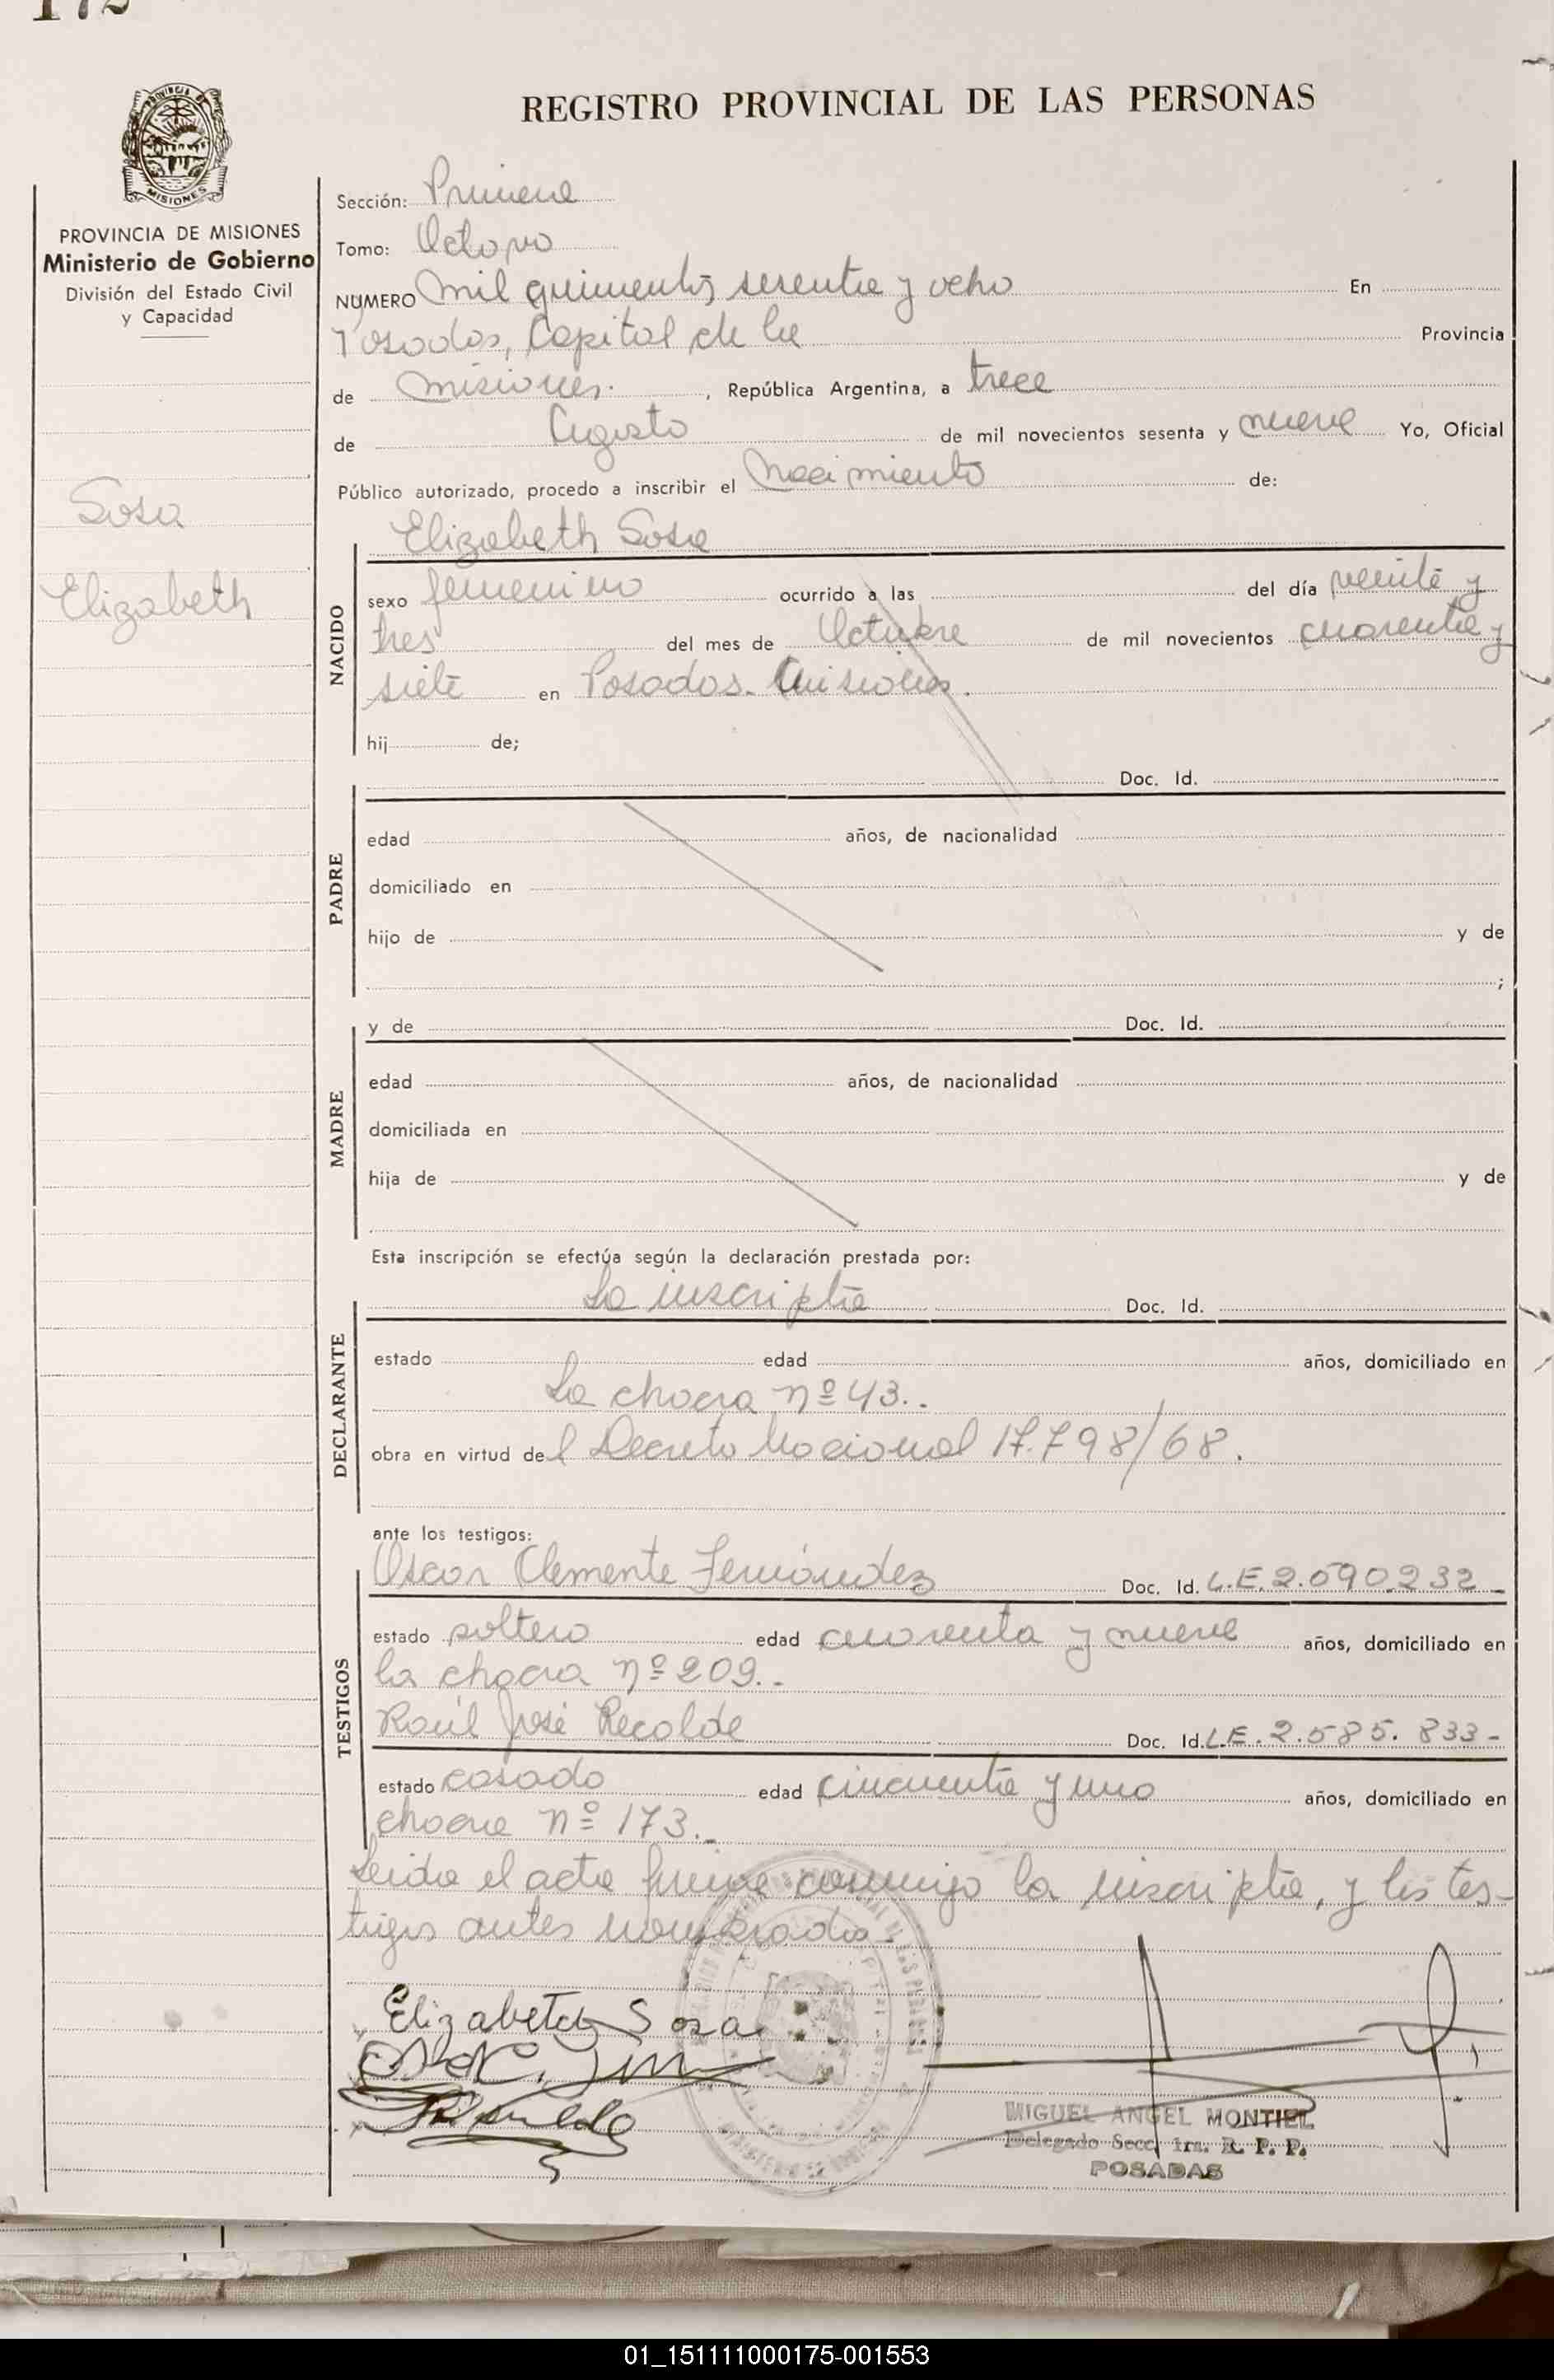 172
REGISTRO PROVINCIAL DE LAS PERSONAS
PROVINCIA DE MISIONES
Ministerio de Gobierno
División del Estado Civil
y Capacidad
Sosa
Elizabeth
Sección: Primera
Tomo: Octavo
NUMERO Mil quinientos sesenta y ocho En
Posadas, Capital de la Provincia
de Misiones. , República Argentina, a trece
de Agosto de mil novecientos sesenta y nueve Yo, Oficial
Público autorizado, procedo a inscribir el Nacimiento de:
Elizabeth Sosa
NACIDO
sexo femenino ocurrido a las del día veinte y
tres del mes de Octubre de mil novecientos cuarenta y
siete en Posadas. Misiones.
hij de;
Doc. Id.
PADRE
edad años, de nacionalidad
domiciliado en
hijo de y de
;
MADRE
y de Doc. Id.
edad años, de nacionalidad
domiciliada en
hija de y de
Esta inscripción se efectúa según la declaración prestada por:
DECLARANTE
La inscripta Doc. Id.
estado edad años, domiciliado en
La chacra nº 43..
obra en virtud del Decreto Nacional 17.798/68.
ante los testigos:
TESTIGOS
Oscar Clemente Fernández Doc. Id. L.E. 2.590.232 -
estado soltero edad cuarenta y nueve años, domiciliado en
la chacra nº 209..
Raúl José Recalde Doc. Id. L.E. 2.585.833 -
estado casado edad cincuenta y uno años, domiciliado en
chacra nº 173..
Leida el acta firma conmigo la inscripta, y los tes-
tigos antes nombrados.
Elizabeth Sosa
MIGUEL ANGEL MONTIEL
Delegado Secc. 1ra. R. P. P.
POSADAS
01_151111000175-001553